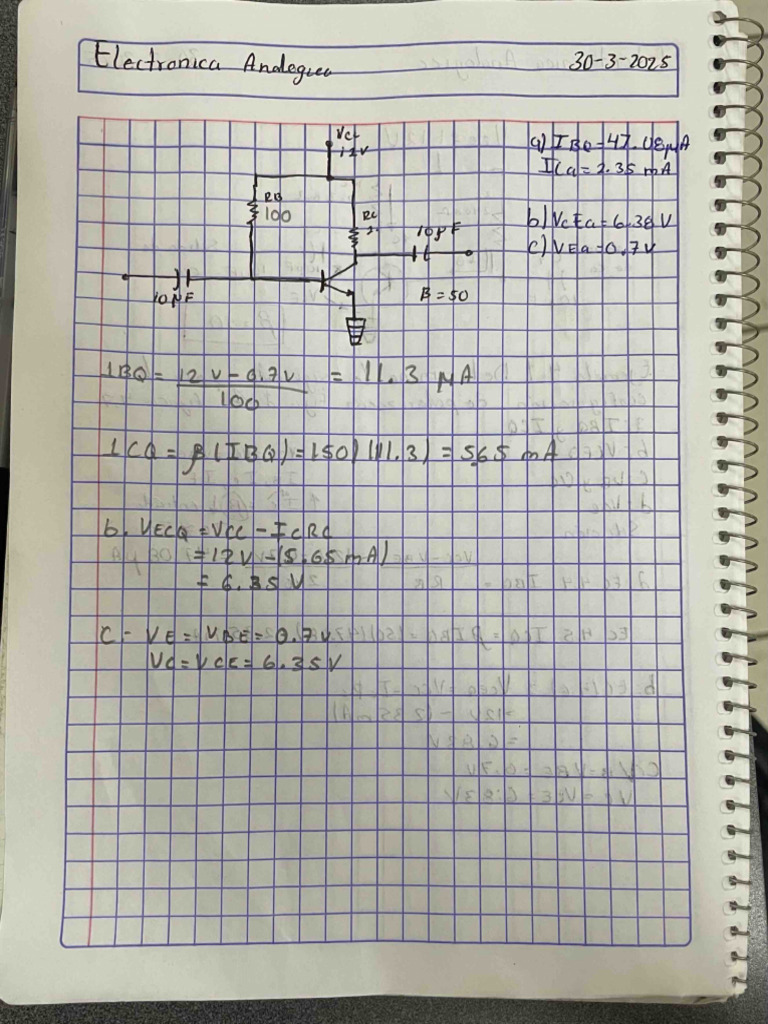 Electronica Analogica
30-3-2025
VCC
12V
RB
100
RC
10µF
10µF
B=50
a) IBQ=47.08µA
ICQ=2.35 mA
b) VCEQ=6.38 V
c) VEQ=0.7V
IBQ = 12 V - 0.7 V / 100 = 11.3 µA
ICQ = β(IBQ) = (50)(11.3) = 565 mA
b. VECQ = VCC - ICRC
= 12V - (5.65 mA)
= 6.35 V
C- VE = VBE = 0.7V
VC = VCE = 6.35V